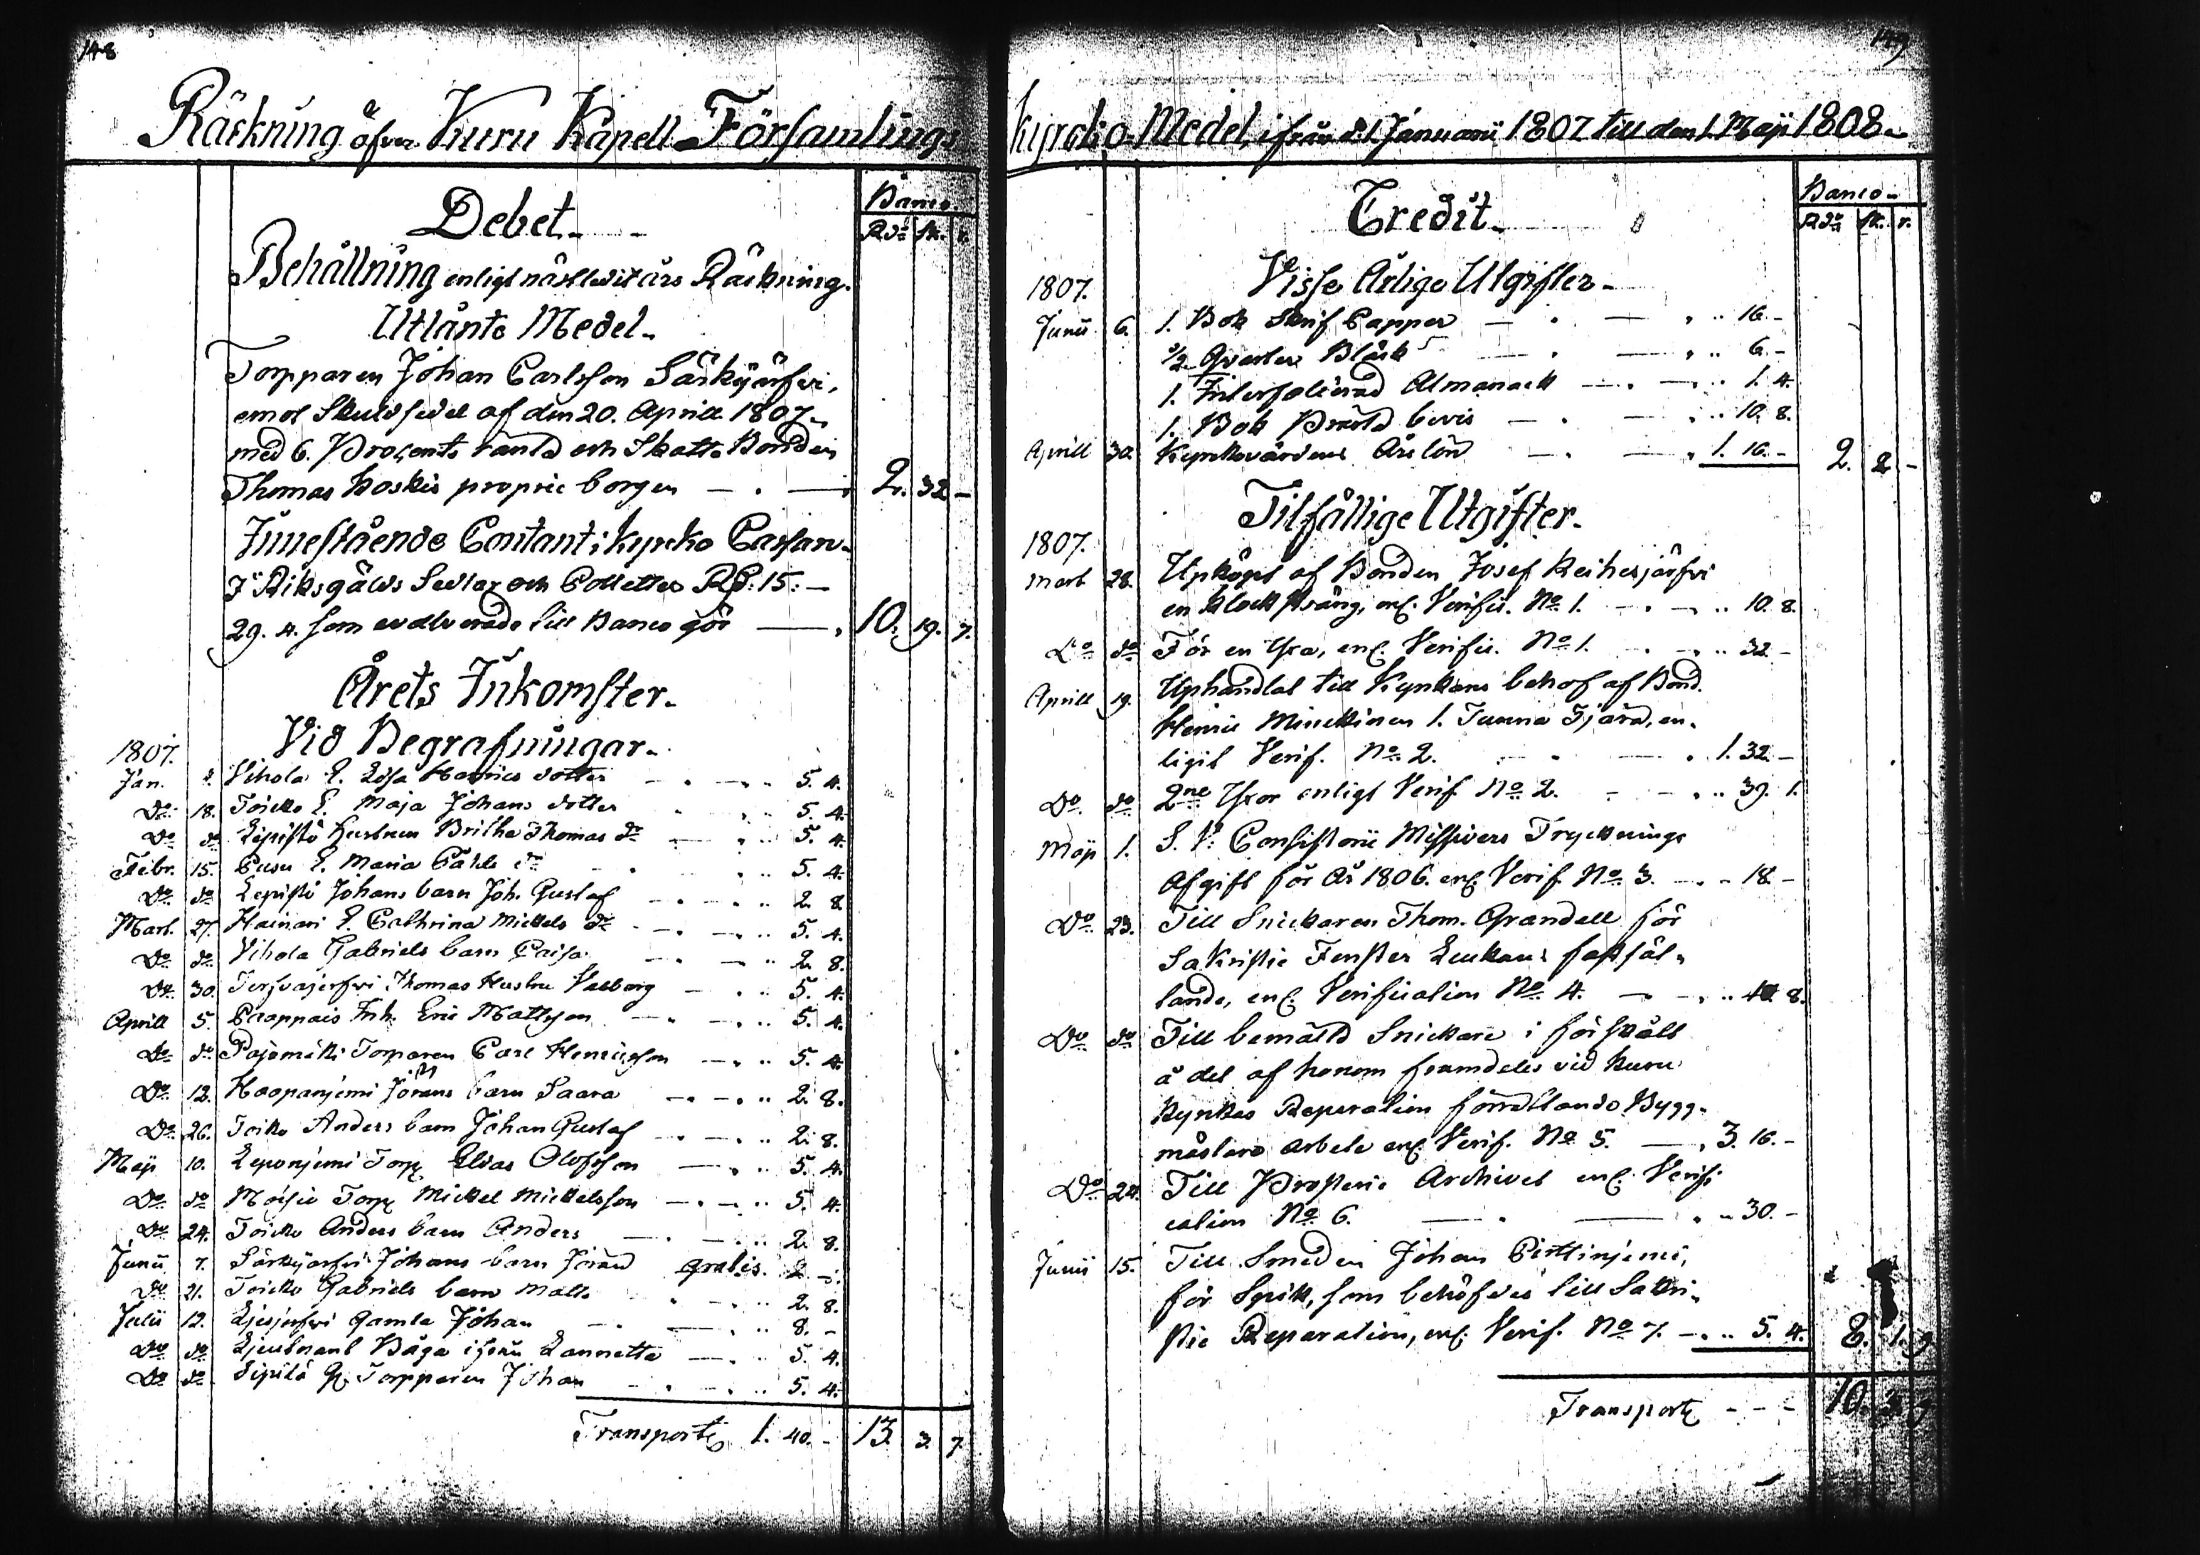 148
Räckning öfver Kuru Kapell Församlings
Debet.
Banco.
Rdr sk. r.
Behållning enligt nästledit års Räckning.
Utlånte Medel.
Torpparen Johan Carlsson Särkijärfvi,
emot Skuldsedel af den 20. Aprill 1807
med 6. Procents ränta och Skatte Bonden
Thomas Koskis proprie borgen — . — 2. 32 –
Innestående Contant i Kyrko Cassan.
I Riksgälds Sedlar och Polletter Rd. 15:
29. 4. som evalverade till Banco gör — 10. 19. 7.
Årets Inkomster.
Vid Begrafningar.
1807.
Jan. Vihola E. Lisa Henrics dotter 5. 4.
Do 18. Toicko E. Maja Johans dotter 5. 4.
Do do Lepistö hustrun Britha Thomas dr 5. 4.
Febr. 15. E. Maria dr 5. 4.
Do do Lepistö Johans barn Joh. Gustaf 2. 8.
Mart. 27. Hainari E. Cathrina Mickels dr 5. 4.
Do do Vihola Gabriels barn Caisa 2. 8.
Do 30. Thomas Hustru Valborg 5. 4.
Aprill 5. Inh. Eric Mattsson 5. 4.
Do do Pajamäki Torparen Carl Henricsson 5. 4.
Do 12. Haapanjemi Jörans barn Saara 2. 8.
Do 26. Toiko Anders barn Johan Gustaf 2. 8.
Maji 10. Leponjemi Torp. Elias Olofsson 5. 4.
Do do Moisio Torp. Mickel Mickelsson 5. 4.
Do 24. Toicko Anders barn Anders 2. 8.
Junii 7. Särkijärfvi Johans barn Jöran gratis. 2 –
Do 21. Toicko Gabriels barn Matts 2. 8.
Julii 12. gamla Johan 8. –
Do do Lieutnant Båga ifrån Lannetta 5. 4.
Do do Sipilä Torpparen Johan 5. 4.
Transport 1. 40. – 13. 3. 7.
149
Kyrcko-Medel, ifrån d. 1 Januarii 1807 till den 1. Maji 1808.
Credit.
Banco
Rdr sk. r.
Visse Årlige Utgifter.
1807.
Junii 6. 1. Bok Skrif Papper 16. –
1/2 Qvarter Bläck 6. –
1. Interfolierad Almanack 1. 4.
1. Bok Bränd bevis 10. 8.
Aprill 30. Kyrkovärdens Årslön 1. 16. – 2. 2 –
Tilfällige Utgifter.
1807.
Mart 28. Upköpt af Bonden Josef Keihesjärfvi
en klocksträng, enl. Verific. No 1. 10. 8.
Do do För en Yxa, enl. Verific. No 1. 32 –
Aprill 19. Uphandlat till Kyrkans behof af Bond.
Henric Minckinen 1. Tunna Tjära, en-
ligit Verif. No 2. 1. 32 –
Do do 2ne Yxor enligt Verif. No 2. 39. 1.
Maji 1. S. V. Consistorii Missivers Trycknings
Afgift för År 1806. enl. Verif. No 3. 18 –
Do 23. Till Snickaren Thom. Grandell för
Sakristie Fenster Luckans fastsät-
tande, enl. Verification No 4. 8.
Do do Till bemälld Snickare i förskått
å det af honom framdeles vid Kuru
Kyrkas Reparation förrättande Bygg-
mästare arbete enl. Verif. No 5. 3. 16. –
Do 24. Till Prosterie Archivet enl. Verifi
cation No 6. 30. –
Junii 15. Till Smeden Johan Pinttinjemi,
för Spik, som behöfdes till Sakri-
stie Reparation, enl. Verif. No 7. 5. 4. 8. 1. 9
Transport - - - 10.